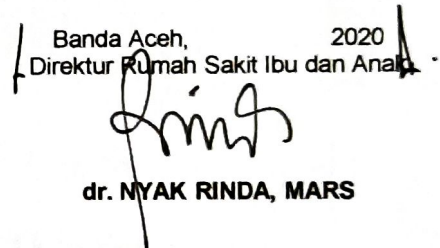 Banda Aceh, 2020
Direktur Rumah Sakit Ibu dan Anak
dr. NYAK RINDA, MARS